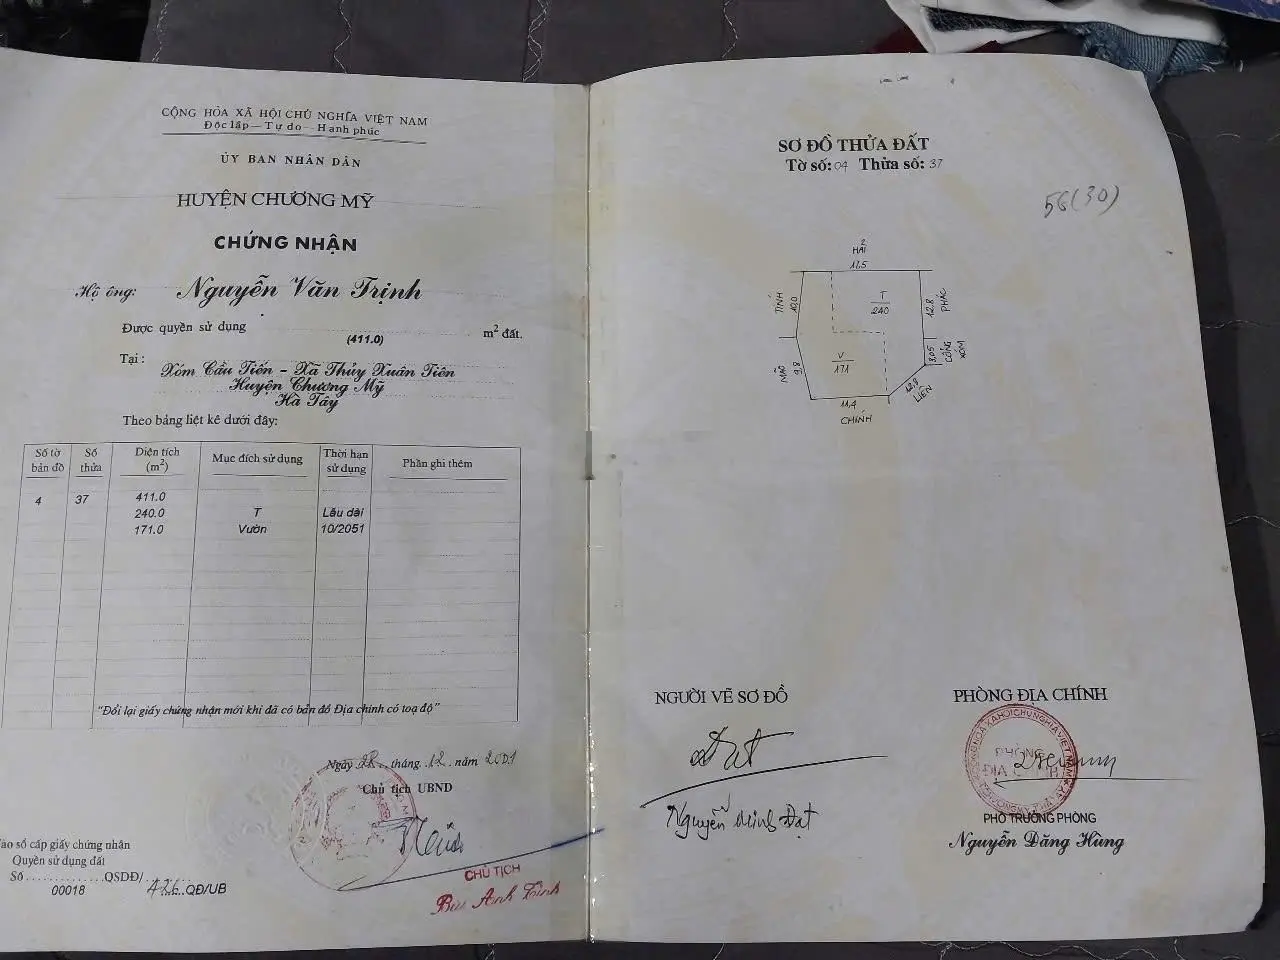 CỘNG HÒA XÃ HỘI CHỦ NGHĨA VIỆT NAM
Độc lập - Tự do - Hạnh phúc
ỦY BAN NHÂN DÂN
HUYỆN CHƯƠNG MỸ
CHỨNG NHẬN
Hộ ông: Nguyễn Văn Trịnh
Được quyền sử dụng (411.0) m² đất.
Tại: Xóm Cầu Tiến - Xã Thủy Xuân Tiên
Huyện Chương Mỹ
Hà Tây
Theo bảng liệt kê dưới đây:
Số tờ bản đồ Số thửa Diện tích (m²) Mục đích sử dụng Thời hạn sử dụng Phần ghi thêm
4 37 411.0
240.0 T Lâu dài
171.0 Vườn 10/2051
"Đổi lại giấy chứng nhận mới khi đã có bản đồ Địa chính có toạ độ"
Ngày 28 tháng 12 năm 2001
Chủ tịch UBND
CHỦ TỊCH
Bùi Anh Tình
vào sổ cấp giấy chứng nhận
Quyền sử dụng đất
Số............QSDĐ/........
00018 426 QĐ/UB
SƠ ĐỒ THỬA ĐẤT
Tờ số: 04 Thửa số: 37
56(30)
2
HẢI
17,5
TÍNH
10,0
T
240
12,8
PHÁC
MÃO
9,8
V
171
3,05
CỔNG XÓM
LIÊN
11,4
CHÍNH
NGƯỜI VẼ SƠ ĐỒ
Đạt
Nguyễn Minh Đạt
PHÒNG ĐỊA CHÍNH
PHÒNG
ĐỊA CHÍNH
PHÓ TRƯỞNG PHÒNG
Nguyễn Đăng Hùng